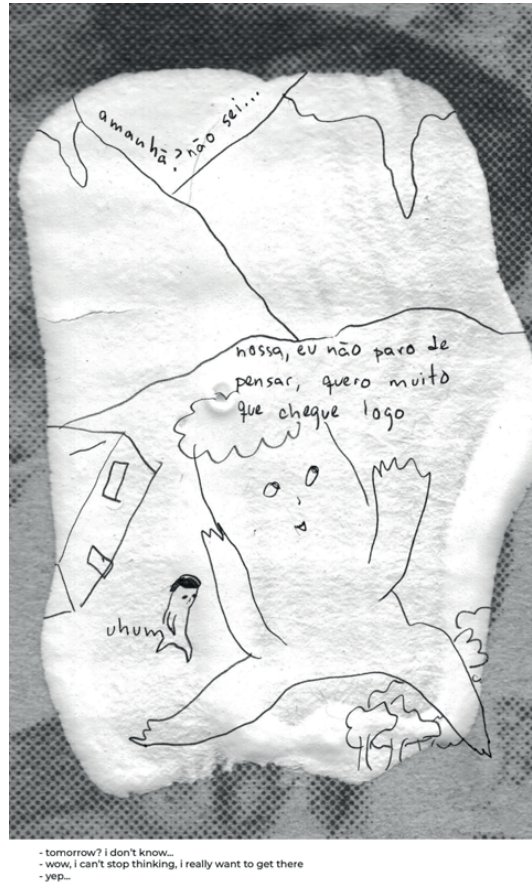 amanhã? não sei...
nossa, eu não paro de
pensar, quero muito
que chegue logo
uhum
- tomorrow? i don't know...
- wow, i can't stop thinking, i really want to get there
- yep...